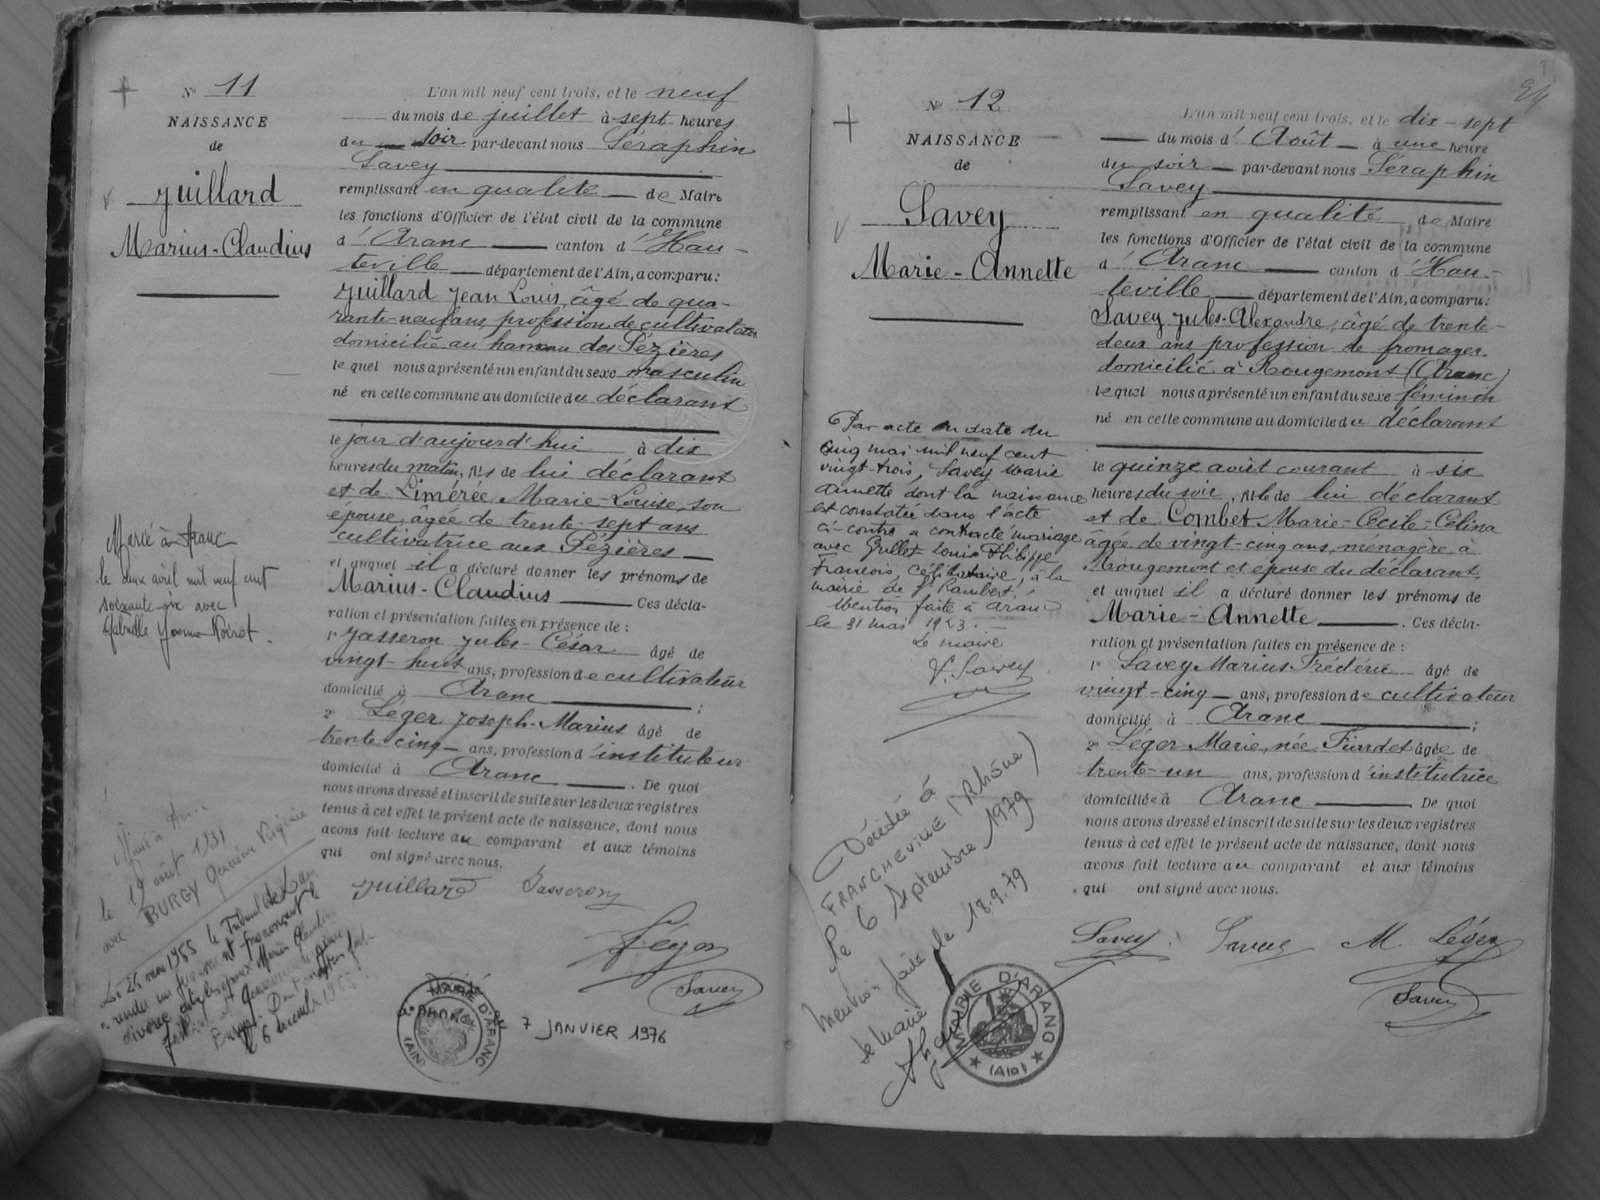 N° 11
NAISSANCE
de
Juillard
Marius-Claudius
L'an mil neuf cent trois, et le neuf
du mois de juillet à sept heures
du soir par-devant nous Séraphin
Savey
remplissant en qualité de Maire
les fonctions d'Officier de l'état civil de la commune
d'Aranc canton d'Hau-
teville département de l'Ain, a comparu:
Juillard Jean Louis, âgé de qua-
rante-neuf ans, profession de cultivateur
domicilié au hameau des Pézières
lequel nous a présenté un enfant du sexe masculin
né en cette commune au domicile du déclarant
le jour d'aujourd'hui à dix
heures du matin, fils de lui déclarant
et de Limérée Marie-Louise, son
épouse, âgée de trente-sept ans
cultivatrice aux Pézières
et auquel il a déclaré donner les prénoms de
Marius-Claudius Ces décla-
ration et présentation faites en présence de :
1° Jasseron Jules-César âgé de
vingt-huit ans, profession de cultivateur
domicilié à Aranc ;
2° Léger Joseph-Marius âgé de
trente-cinq ans, profession d'instituteur
domicilié à Aranc . De quoi
nous avons dressé et inscrit de suite sur les deux registres
tenus à cet effet le présent acte de naissance, dont nous
avons fait lecture au comparant et aux témoins
qui ont signé avec nous.
Juillard Jasseron
Léger
Savey
Marié à Aranc
le deux avril mil neuf cent
soixante-six avec
Gabrielle Yvonne Noirot.
Marié à Aranc
le 19 août 1931
avec BURGY Germaine Virginie
Le 24 mars 1955 le Tribunal
a rendu un jugement prononçant le
divorce entre les époux Marius Claudius
Burgy.
MAIRIE D'ARANC
(AIN)
7 JANVIER 1976
24
N° 12
NAISSANCE
de
Savey
Marie-Annette
L'an mil neuf cent trois, et le dix-sept
du mois d'Août à une heure
du soir par-devant nous Séraphin
Savey
remplissant en qualité de Maire
les fonctions d'Officier de l'état civil de la commune
d'Aranc canton d'Hau-
teville département de l'Ain, a comparu:
Savey Jules-Alexandre, âgé de trente-
deux ans profession de fromager
domicilié à Rougemont (Aranc)
lequel nous a présenté un enfant du sexe féminin
né en cette commune au domicile du déclarant
le quinze août courant à six
heures du soir, fille de lui déclarant
et de Combet Marie-Cécile-Célina
âgée de vingt-cinq ans, ménagère à
Rougemont et épouse du déclarant,
et auquel il a déclaré donner les prénoms de
Marie-Annette . Ces décla-
ration et présentation faites en présence de :
1° Savey Marius Frédéric âgé de
vingt-cinq ans, profession de cultivateur
domicilié à Aranc ;
2° Léger Marie, née Fiardet âgée de
trente-un ans, profession d'institutrice
domiciliée à Aranc . De quoi
nous avons dressé et inscrit de suite sur les deux registres
tenus à cet effet le présent acte de naissance, dont nous
avons fait lecture au comparant et aux témoins
qui ont signé avec nous.
Savey Savey M. Léger
Savey
Par acte en date du
cinq mai mil neuf cent
vingt-trois, Savey Marie
Annette dont la naissance
est constatée dans l'acte
ci-contre a contracté mariage
avec Grillet Louis Philippe
François, célibataire, à la
mairie de St Rambert.
Mention faite à Aranc
le 31 mai 1923.
Le maire
V. Savey
Décédée à
FRANCHEVILLE (Rhône)
le 6 Septembre 1979
Mention faite le 18.9.79
Le Maire
MAIRIE D'ARANC
(Ain)